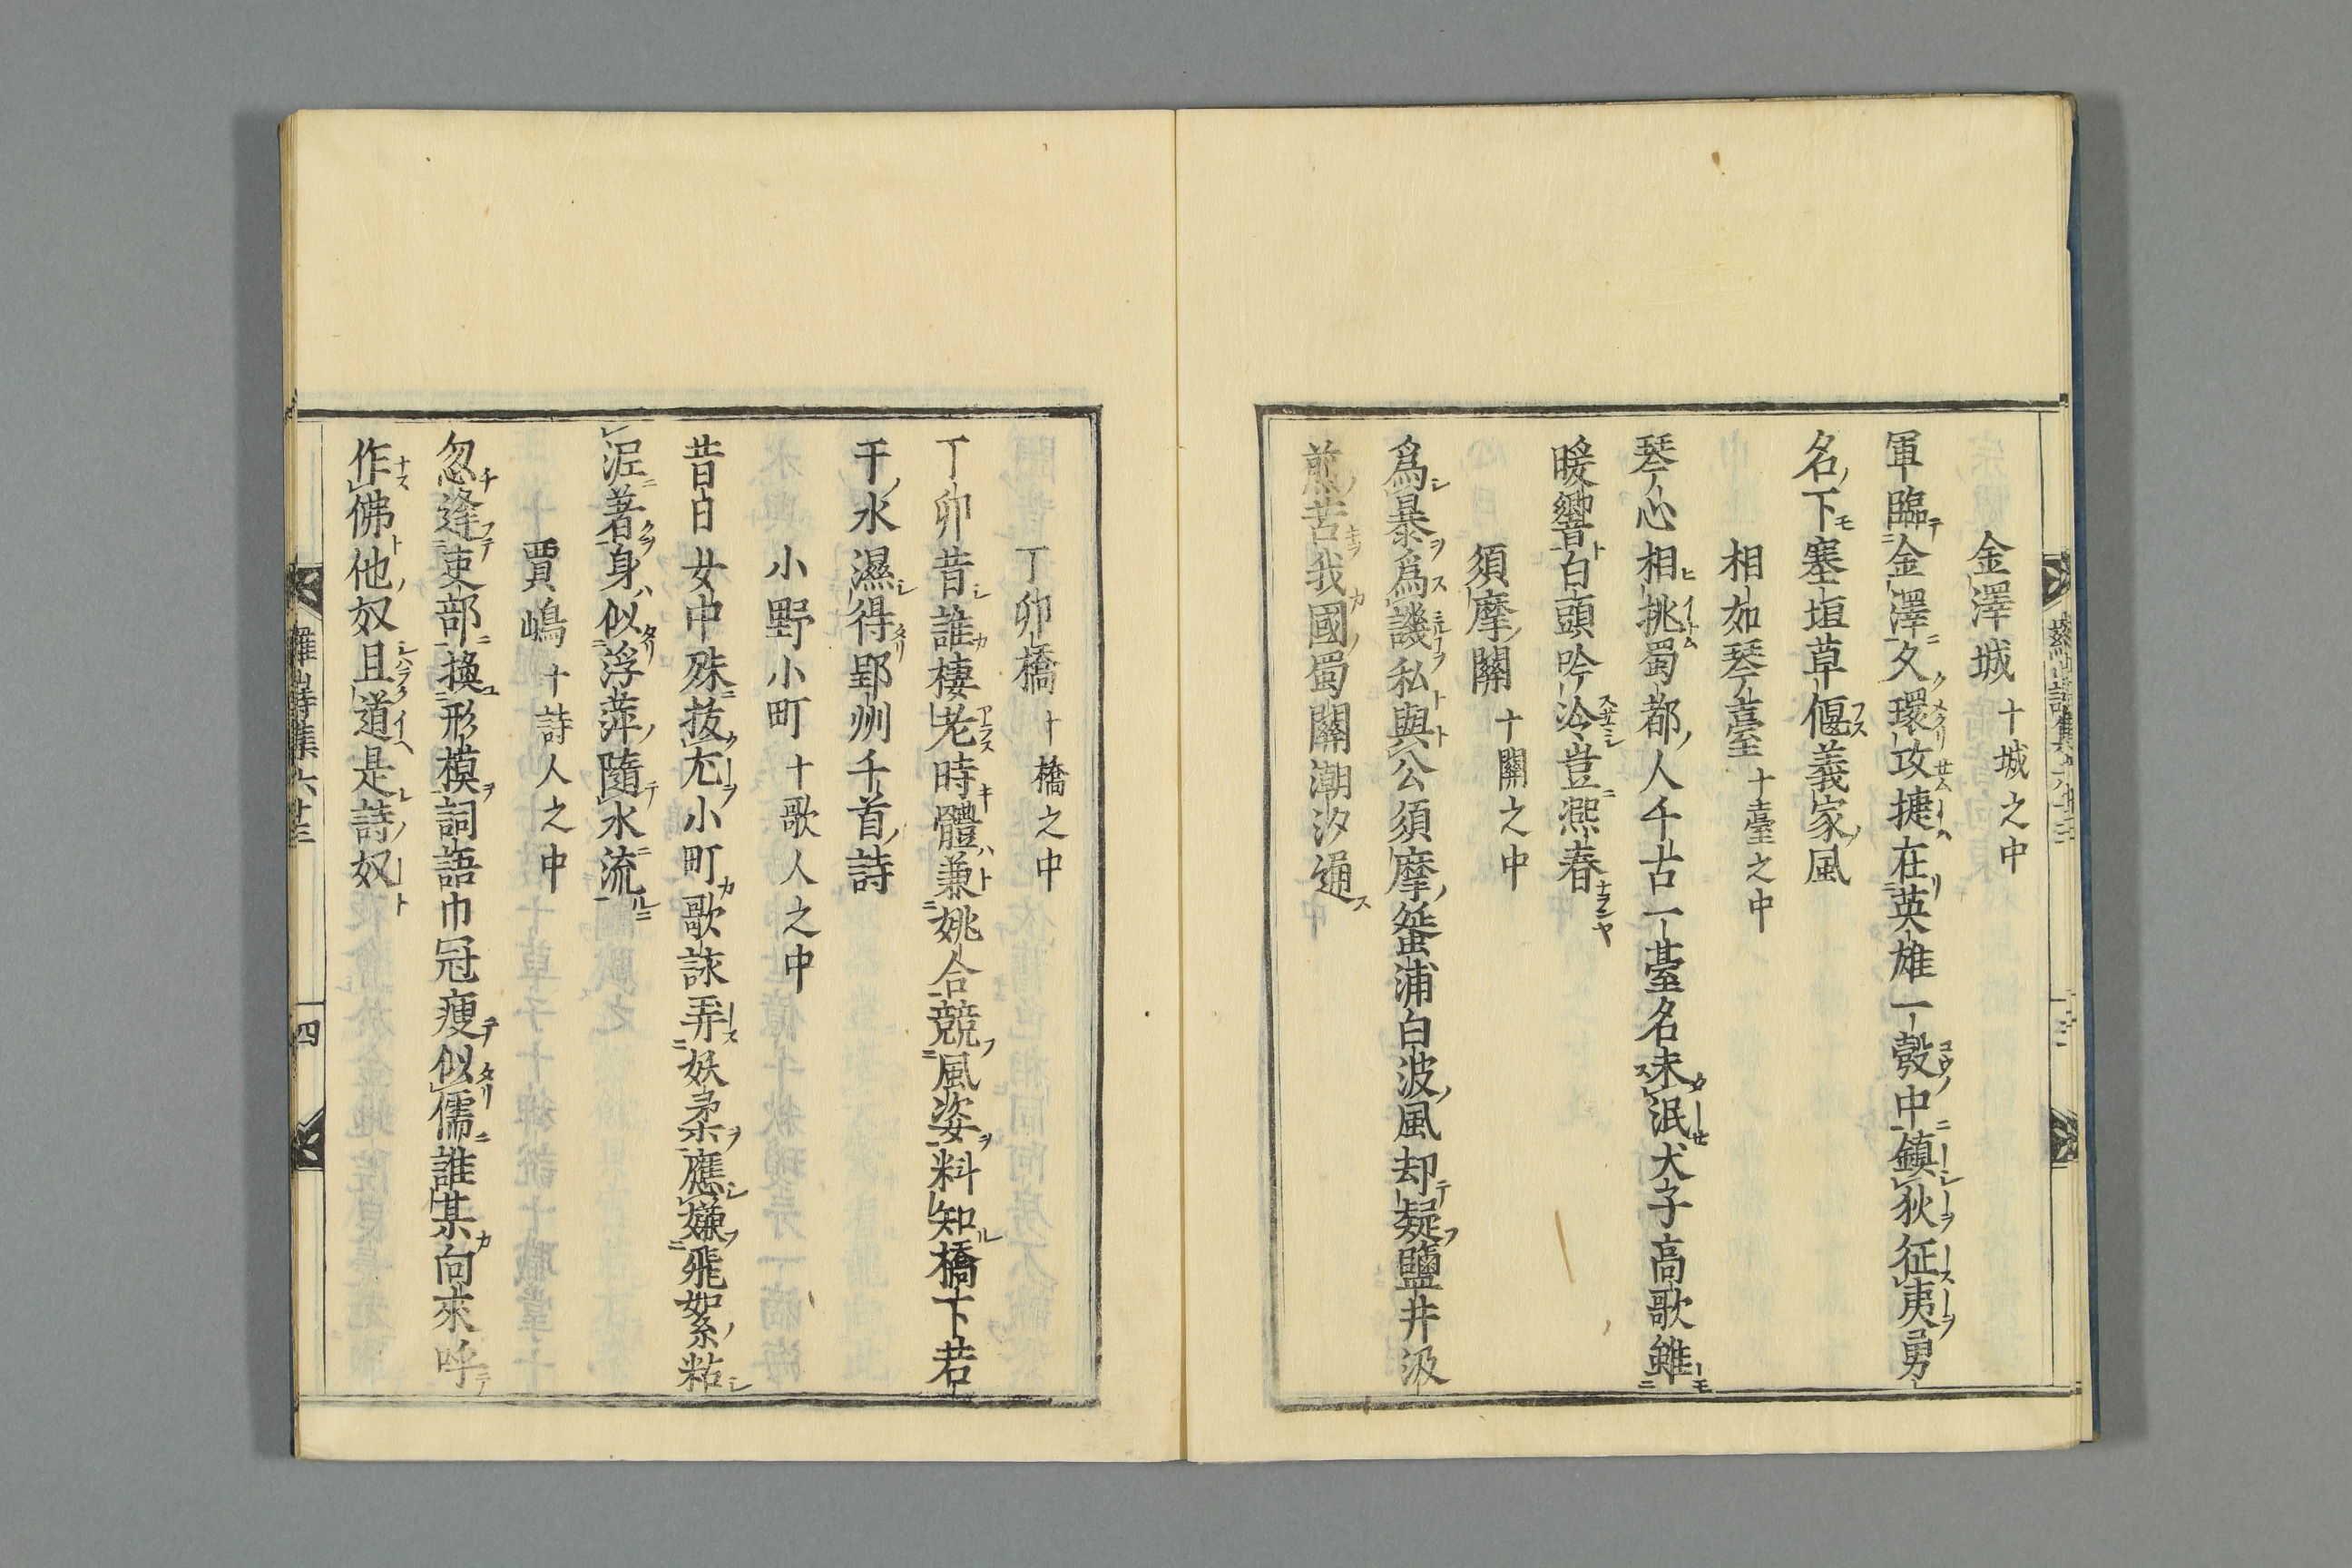 金澤城 十城之中
軍臨金澤久環攻捷在英雄一彀中鎮狄征夷勇
名下塞垣草偃義家風
相如琴臺 十臺之中
琴心相挑蜀都人千古一臺名未泯犬子高歌雖
暖響白頭吟冷豈熈春
須摩關 十關之中
爲暴爲譏私與公須摩蜑浦白波風却疑鹽井汲
煎苦我國蜀關潮汐通
丁卯橋 十橋之中
丁卯昔誰棲老時體兼姚合競風姿料知橋下若
干水濕得郢州千首詩
小野小町 十歌人之中
昔日女中殊拔尤小町歌詠弄妖柔應嫌飛絮粘
泥著身似浮萍隨水流
賈嶋 十詩人之中
忽逢吏部換形模詞語巾冠瘦似儒誰某向來呼
作佛他奴且道是詩奴
羅山詩集六十三
四